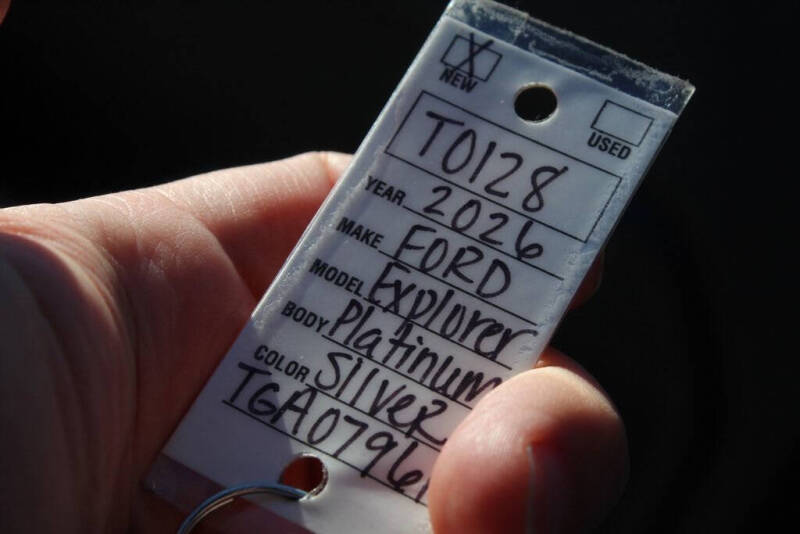 X NEW
USED
T0128
YEAR 2026
MAKE FORD
MODEL Explorer
BODY Platinum
COLOR Silver